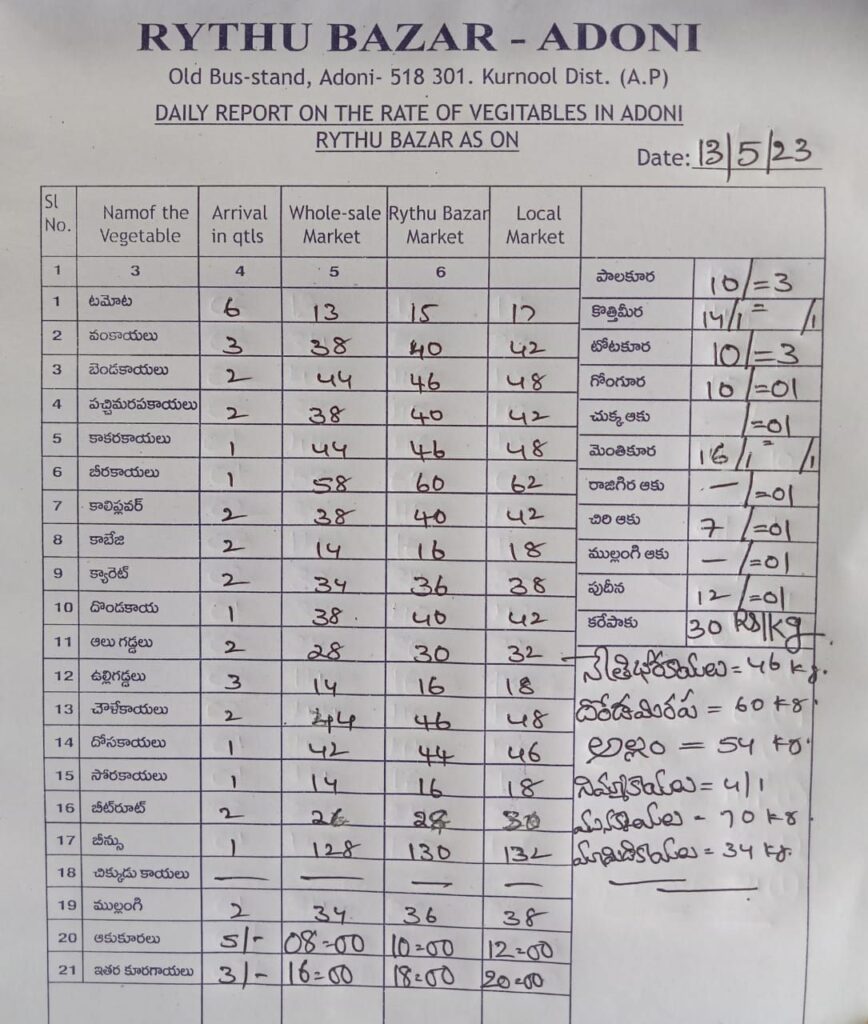 RYTHU BAZAR - ADONI
Old Bus-stand, Adoni- 518 301. Kurnool Dist. (A.P)
DAILY REPORT ON THE RATE OF VEGITABLES IN ADONI
RYTHU BAZAR AS ON
Date: 13/5/23
Sl No. Namof the Vegetable Arrival in qtls Whole-sale Market Rythu Bazar Market Local Market
1 3 4 5 6
1 టమోట 6 13 15 17
2 వంకాయలు 3 38 40 42
3 బెండకాయలు 2 44 46 48
4 పచ్చిమరపకాయలు 2 38 40 42
5 కాకరకాయలు 1 44 46 48
6 బీరకాయలు 1 58 60 62
7 కాలిఫ్లవర్ 2 38 40 42
8 కాబేజి 2 14 16 18
9 క్యారెట్ 2 34 36 38
10 దొండకాయ 1 38 40 42
11 ఆలు గడ్డలు 2 28 30 32
12 ఉల్లిగడ్డలు 3 14 16 18
13 చౌళేకాయలు 2 44 46 48
14 దోసకాయలు 1 42 44 46
15 సోరకాయలు 1 14 16 18
16 బీట్‌రూట్ 2 26 28 30
17 బీన్సు 1 128 130 132
18 చిక్కుడు కాయలు — — — —
19 ముల్లంగి 2 34 36 38
20 ఆకుకూరలు 5/- 08=00 10=00 12=00
21 ఇతర కూరగాయలు 3/- 16=00 18=00 20=00
పాలకూర 10/=3
కొత్తిమీర 14/1= /1
టోటకూర 10/=3
గోంగూర 10/=01
చుక్క ఆకు /=01
మెంతికూర 16/1= /1
రాజిగిర ఆకు — /=01
చిరి ఆకు 7 /=01
ముల్లంగి ఆకు — /=01
పుదీన 12 /=01
కరేపాకు 30 Rs/kg
= 46 kg.
= 60 kg
అల్లం = 54 kg.
నిమ్మకాయలు = 4/1
మునకాయలు - 70 kg
మామిడికాయలు = 34 kg.